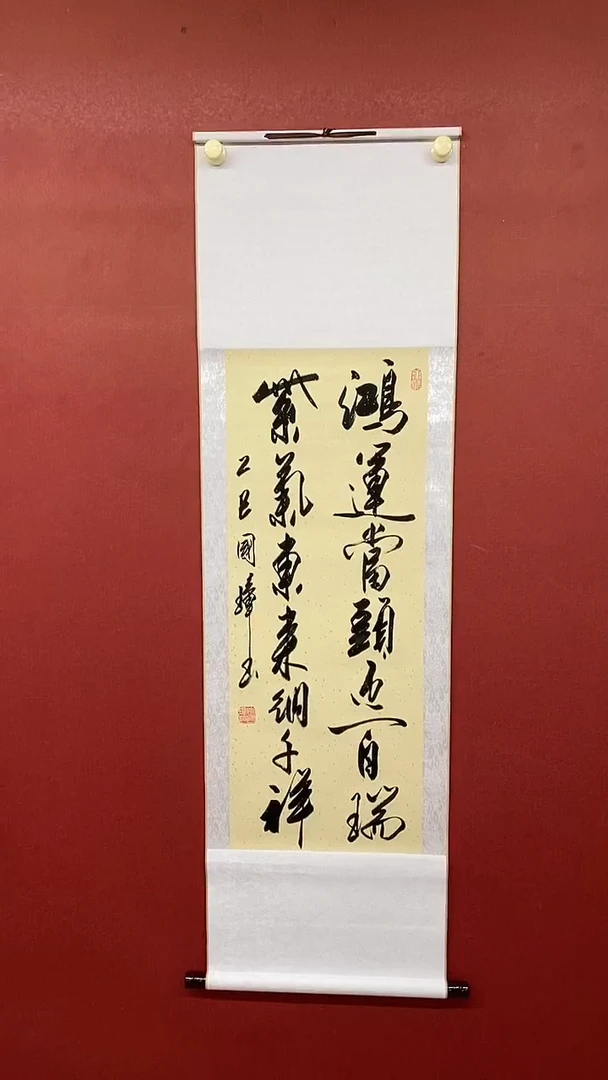 鴻運當頭迎百瑞
紫氣東來納千祥
乙巳國璋書